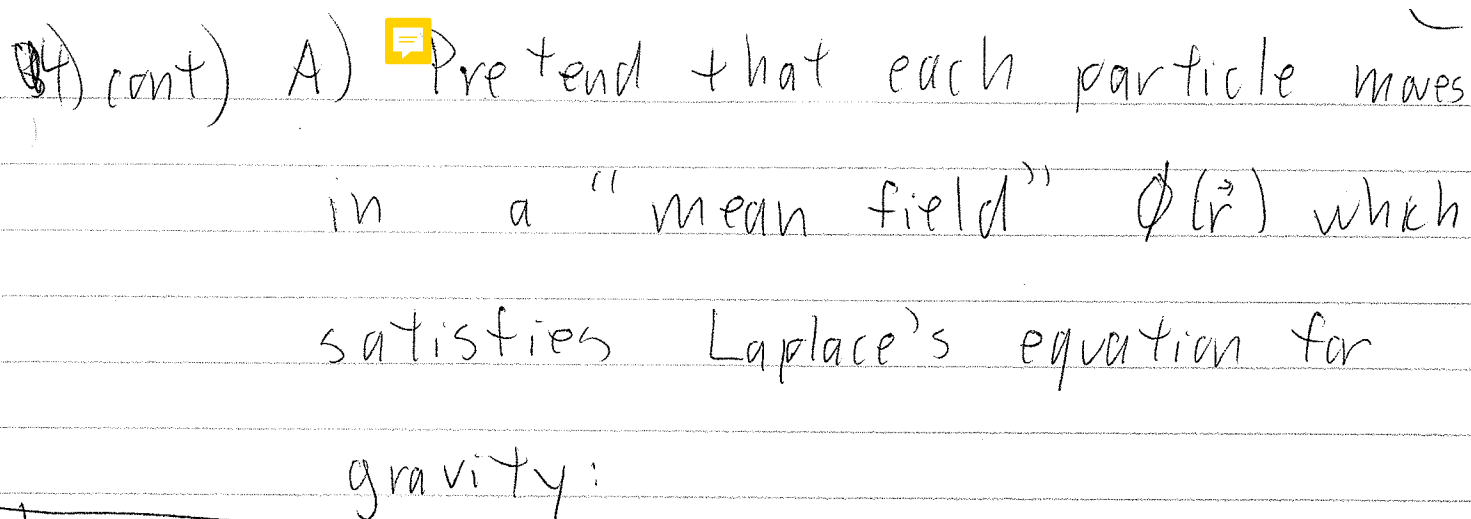 4) cont) A) Pretend that each particle moves
in a "mean field" ϕ(r⃗) which
satisfies Laplace's equation for
gravity: